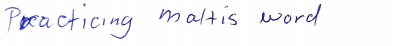 Practicing maltis word